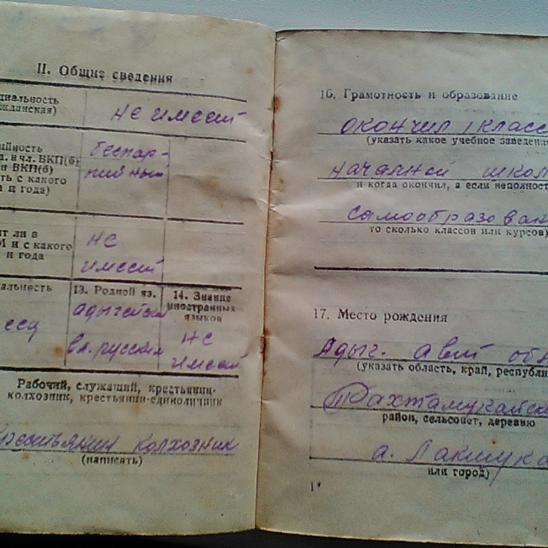 II. Общие сведения
циальность
жданская)
не имеет
ийность
д. в чл. ВКП(б)
н ВКП(б)
ть с какого
а и года)
беспар-
тийный
ит ли в
М и с какого
и года
не
имеет
альность
13. Родной яз.
14. Знание
иностранных
языков
адыгейский
вл. русским
не
имеет
Рабочий, служащий, крестьянин-
колхозник, крестьянин-единоличник
крестьянин колхозник
(написать)
16. Грамотность и образование
окончил 1 класс
(указать какое учебное заведени
начальной школ
и когда окончил, а если неполность
самообразован
то сколько классов или курсов)
17. Место рождения
Адыг. авт обл
(указать область, край, республи
Тахтамукайск
район, сельсовет, деревню
а.
или город)
1*